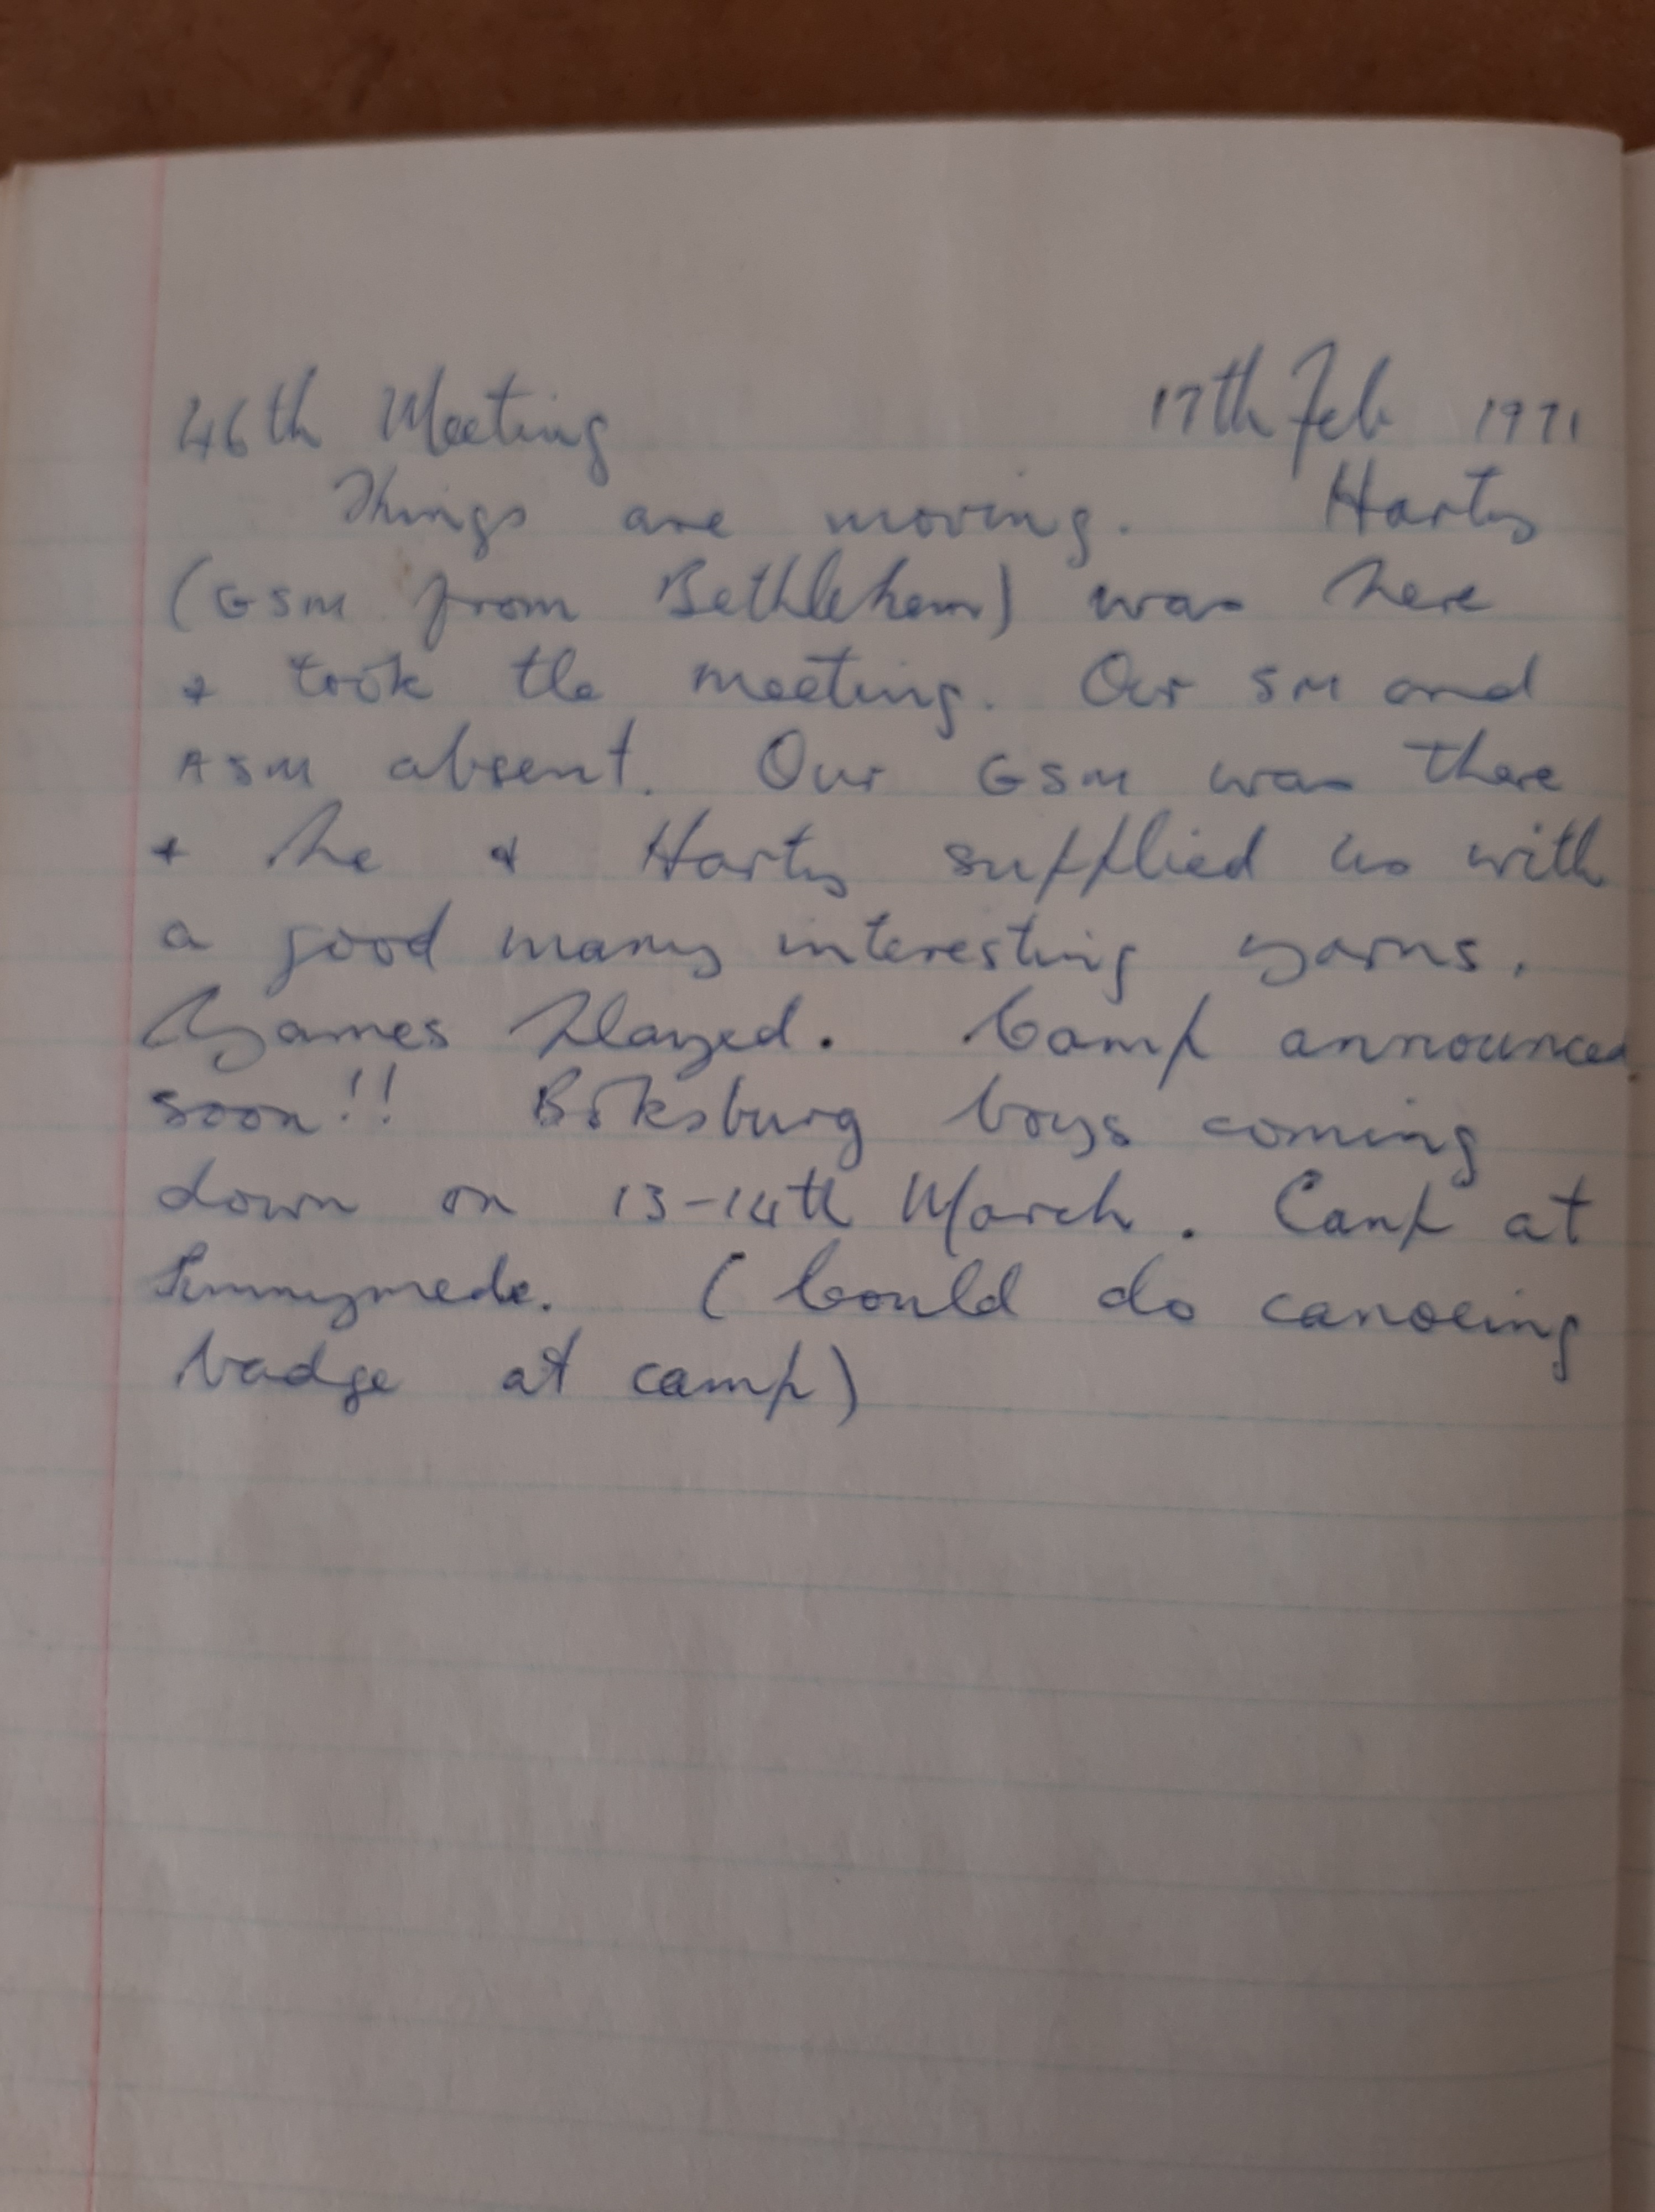 46th Meeting 17th Feb 1971
Things are moving. Harty
(GSM from Bethlehem) was here
+ took the meeting. Our SM and
ASM absent. Our GSM was there
+ he & Harty supplied us with
a good many interesting yarns.
Games Played. Camp announced
soon!! Boksburg boys coming
down on 13-14th March. Camp at
(Could do canoeing
badge at camp)